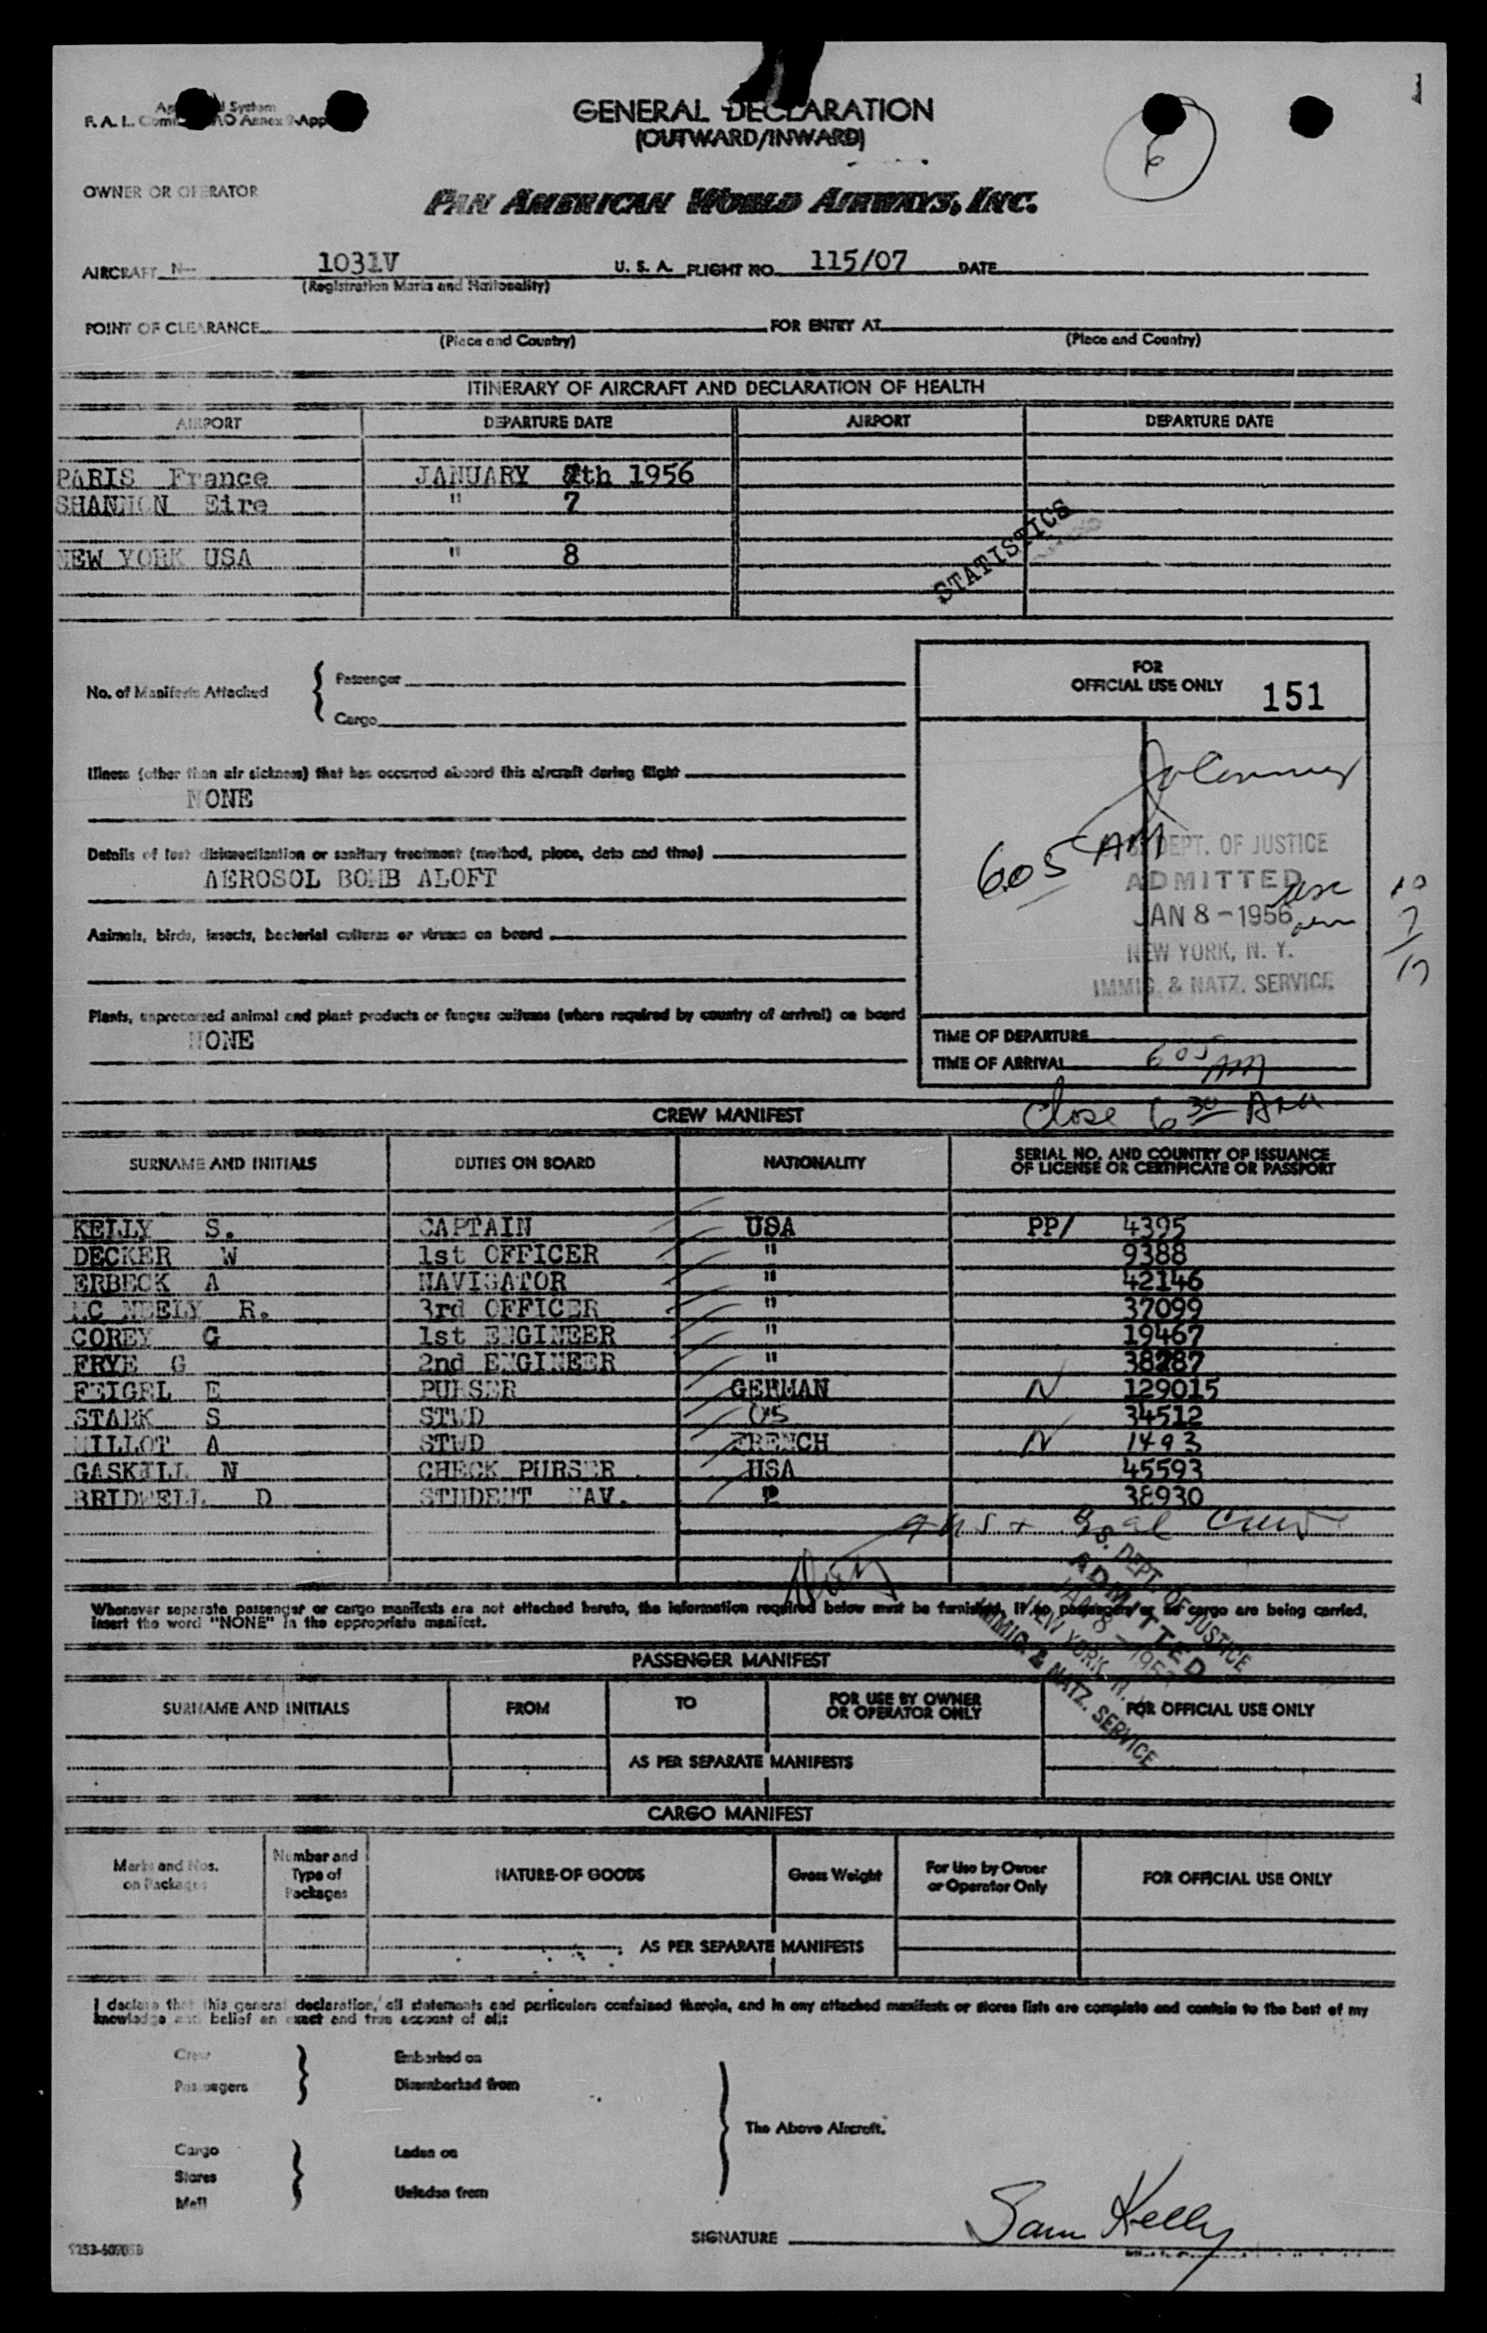 GENERAL DECLARATION
(OUTWARD/INWARD)
6
F. A. L.
OWNER OR OPERATOR
PAN AMERICAN WORLD AIRWAYS, INC.
AIRCRAFT N- 1031V U. S. A. FLIGHT NO. 115/07 DATE
(Registration Marks and Nationality)
POINT OF CLEARANCE FOR ENTRY AT
(Place and Country) (Place and Country)
ITINERARY OF AIRCRAFT AND DECLARATION OF HEALTH
AIRPORT DEPARTURE DATE AIRPORT DEPARTURE DATE
PARIS France JANUARY 7th 1956
SHANNON Eire " 7
NEW YORK USA " 8
STATISTICS
FOR
OFFICIAL USE ONLY 151
No. of Manifests Attached { Passenger
Cargo
Illness (other than air sickness) that has occurred aboard this aircraft during flight
NONE
Details of last disinsectization or sanitary treatment (method, place, date and time)
AEROSOL BOMB ALOFT
Animals, birds, insects, bacterial cultures or viruses on board
Plants, unprocessed animal and plant products or fungus cultures (where required by country of arrival) on board
NONE
605 AM
DEPT. OF JUSTICE
ADMITTED
JAN 8 - 1956
NEW YORK, N. Y.
IMMIG. & NATZ. SERVICE
10
7
17
TIME OF DEPARTURE
TIME OF ARRIVAL 605 AM
Close 6 30 AM
CREW MANIFEST
SURNAME AND INITIALS DUTIES ON BOARD NATIONALITY SERIAL NO. AND COUNTRY OF ISSUANCE
OF LICENSE OR CERTIFICATE OR PASSPORT
KELLY S. CAPTAIN USA PP/ 4395
DECKER W 1st OFFICER " 9388
ERBECK A NAVIGATOR " 42146
MC NEELY R. 3rd OFFICER " 37099
COREY G 1st ENGINEER " 19467
FRYE G 2nd ENGINEER " 38287
FEIGEL E PURSER GERMAN N 129015
STARK S STWD US 34512
MILLOT A STWD FRENCH N 1493
GASKILL N CHECK PURSER USA 45593
BRIDWELL D STUDENT NAV. " 38930
U.S. DEPT. OF JUSTICE
ADMITTED
JAN 8 - 1956
NEW YORK, N. Y.
IMMIG. & NATZ. SERVICE
Whenever separate passenger or cargo manifests are not attached hereto, the information required below must be furnished. If no passengers or no cargo are being carried,
insert the word "NONE" in the appropriate manifest.
PASSENGER MANIFEST
SURNAME AND INITIALS FROM TO FOR USE BY OWNER
OR OPERATOR ONLY FOR OFFICIAL USE ONLY
AS PER SEPARATE MANIFESTS
CARGO MANIFEST
Marks and Nos.
on Packages Number and
Type of
Packages NATURE OF GOODS Gross Weight For Use by Owner
or Operator Only FOR OFFICIAL USE ONLY
AS PER SEPARATE MANIFESTS
I declare that this general declaration, all statements and particulars contained therein, and in any attached manifests or stores lists are complete and contain to the best of my
knowledge and belief an exact and true account of all:
Crew Embarked on
Passengers Disembarked from
The Above Aircraft.
Cargo Laden on
Stores
Mail Unladen from
SIGNATURE Sam Kelly